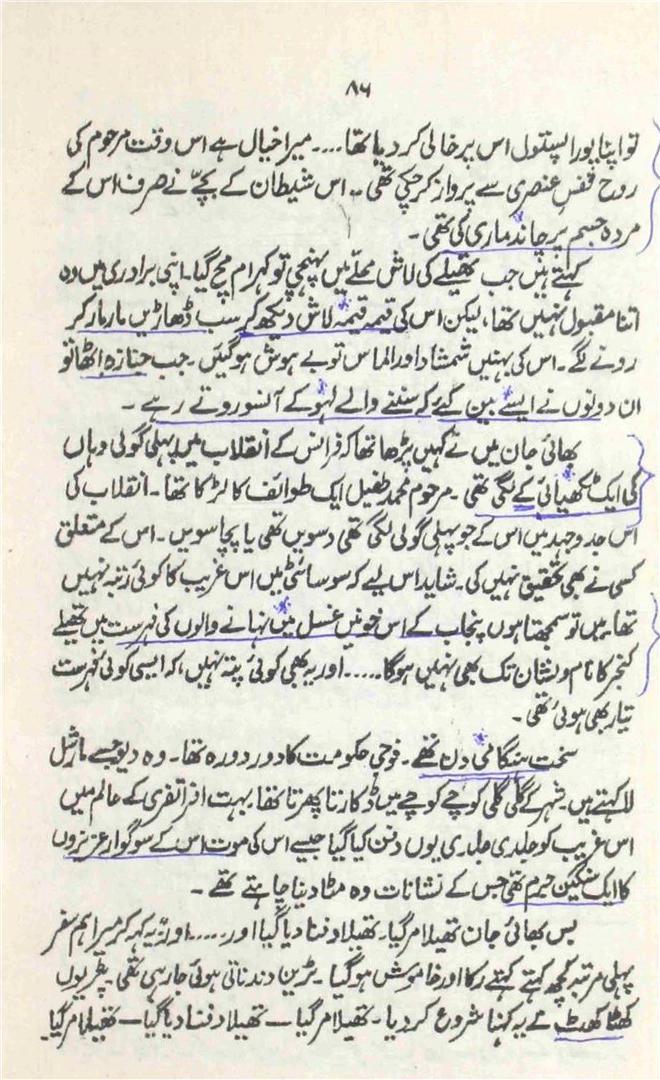 ۸۶
تو اپنا پورا پستول اس پر خالی کر دیا تھا.... میرا خیال ہے اس وقت مرحوم کی
روح قفسِ عنصری سے پرواز کر چکی تھی۔ اس شیطان کے بچے نے صرف اس کے
مردہ جسم پر چاند ماری کی تھی۔
کہتے ہیں جب تھیلے کی لاش محلّے میں پہنچی تو کہرام مچ گیا۔ اپنی برادری میں وہ
اتنا مقبول نہیں تھا، لیکن اس کی قیمہ قیمہ لاش دیکھ کر سب ڈھاڑیں مار مار کر
رونے لگے۔ اس کی بہنیں شمشاد اور الماس تو بے ہوش ہو گئیں۔ جب جنازہ اٹھا تو
ان دونوں نے ایسے بین کیے کہ سننے والے لہو کے آنسو روتے رہے۔
بھائی جان میں نے کہیں پڑھا تھا کہ فرانس کے انقلاب میں پہلی گولی وہاں
کی ایک ٹکھیائی کے لگی تھی۔ مرحوم محمد طفیل ایک طوائف کا لڑکا تھا۔ انقلاب کی
اس جدوجہد میں اس کے جو پہلی گولی لگی تھی دسویں تھی یا پچاسویں۔ اس کے متعلق
کسی نے بھی تحقیق نہیں کی۔ شاید اس لیے کہ سوسائٹی میں اس غریب کا کوئی رتبہ نہیں
تھا۔ میں تو سمجھتا ہوں پنجاب کے اس خونیں غسل میں نہانے والوں کی فہرست میں تھیلے
کنجر کا نام و نشان تک بھی نہیں ہوگا..... اور یہ بھی کوئی پتہ نہیں، کہ ایسی کوئی فہرست
تیار بھی ہوئی تھی۔
سخت ہنگامی دن تھے۔ فوجی حکومت کا دور دورہ تھا۔ وہ دیو جسے مارشل
لا کہتے ہیں۔ شہر کے گلی گلی کوچے کوچے میں ڈکارتا پھرتا تھا۔ بہت افراتفری کے عالم میں
اس غریب کو جلدی جلدی یوں دفن کیا گیا جیسے اس کی موت اس کے سوگوار عزیزوں
کا ایک سنگین جرم تھی جس کے نشانات وہ مٹا دینا چاہتے تھے۔
بس بھائی جان تھیلا مر گیا۔ تھیلا دفنا دیا گیا اور..... اور یہ کہہ کر میرا ہم سفر
پہلی مرتبہ کچھ کہتے کہتے رکا اور خاموش ہو گیا۔ ٹرین دندناتی ہوئی جا رہی تھی۔ پٹریوں
کھٹا کھٹ نے یہ کہنا شروع کر دیا۔ تھیلا مر گیا — تھیلا دفنا دیا گیا — تھیلا مر گیا